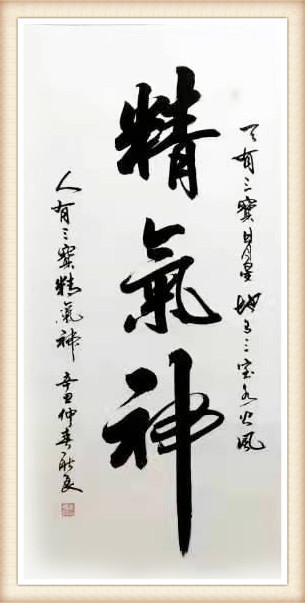 天有三寶日月星 地有三宝水火風
精氣神
人有三寶精氣神 辛丑仲春